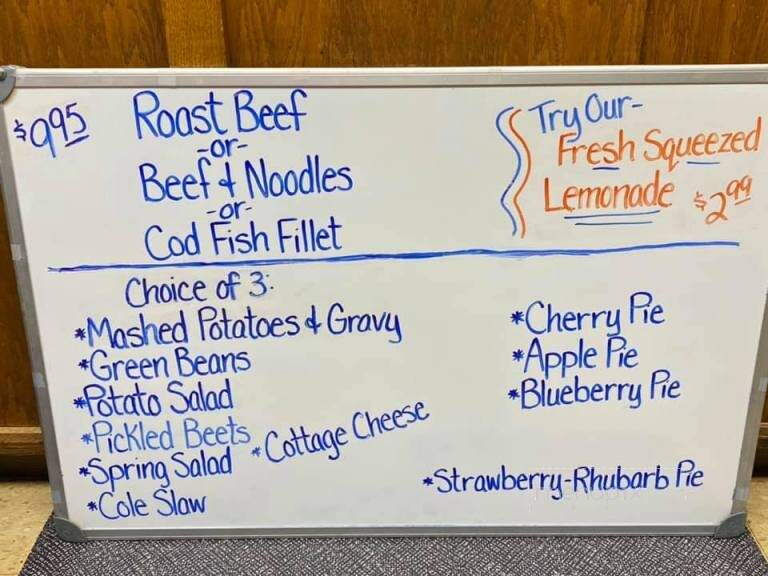 $9.95 Roast Beef
-or-
Beef & Noodles
-or-
Cod Fish Fillet
Try Our-
Fresh Squeezed
Lemonade $2.99
Choice of 3:
*Mashed Potatoes & Gravy
*Green Beans
*Potato Salad
*Pickled Beets
*Cottage Cheese
*Spring Salad
*Cole Slaw
*Cherry Pie
*Apple Pie
*Blueberry Pie
*Strawberry-Rhubarb Pie